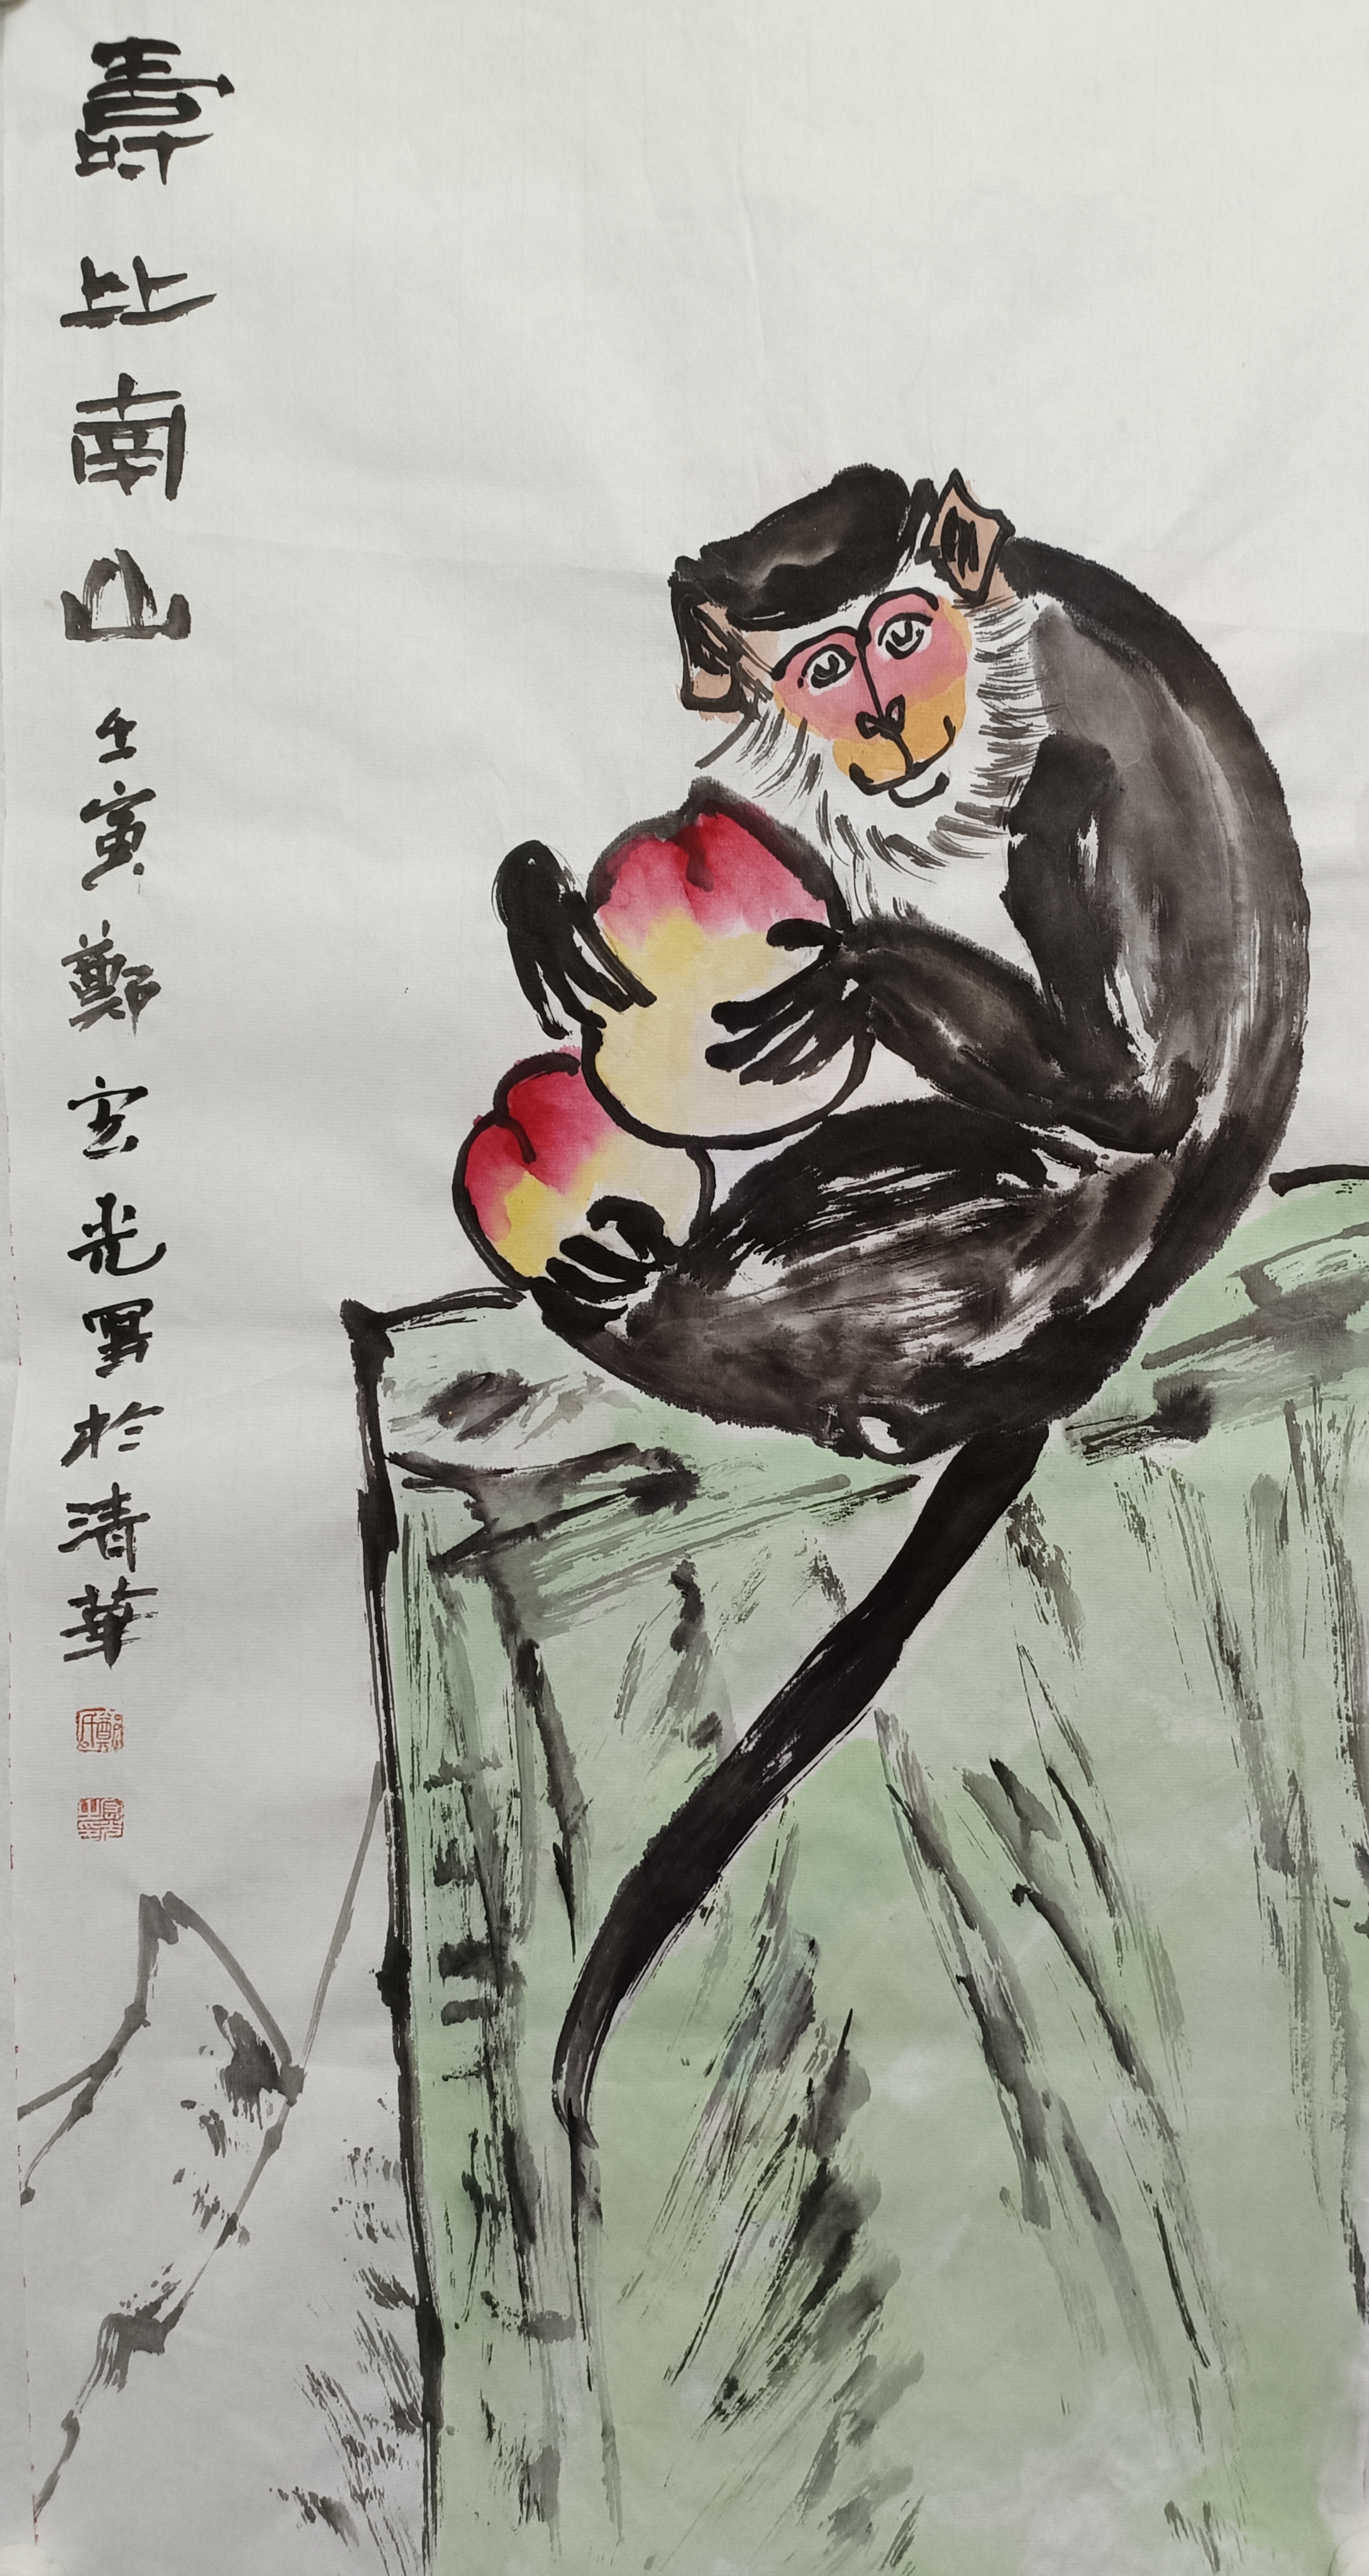 壽比南山
壬寅鄭宏光寫於清華
鄭氏